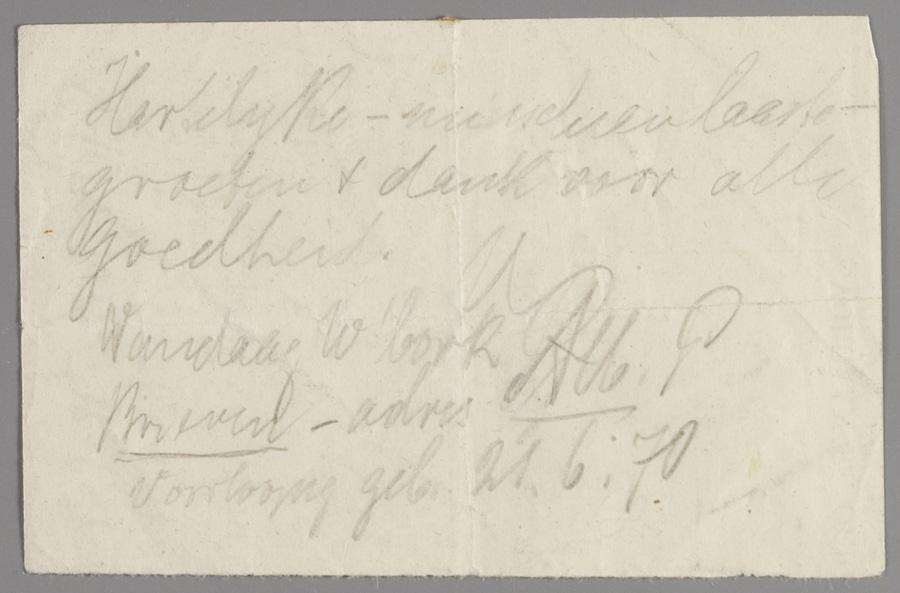 Hartelyke – minduen laatste
groeten + dank voor alle
goedheid.
Vandaag W'bork
Brieven – adres
voorloopig geb. 21.6.70